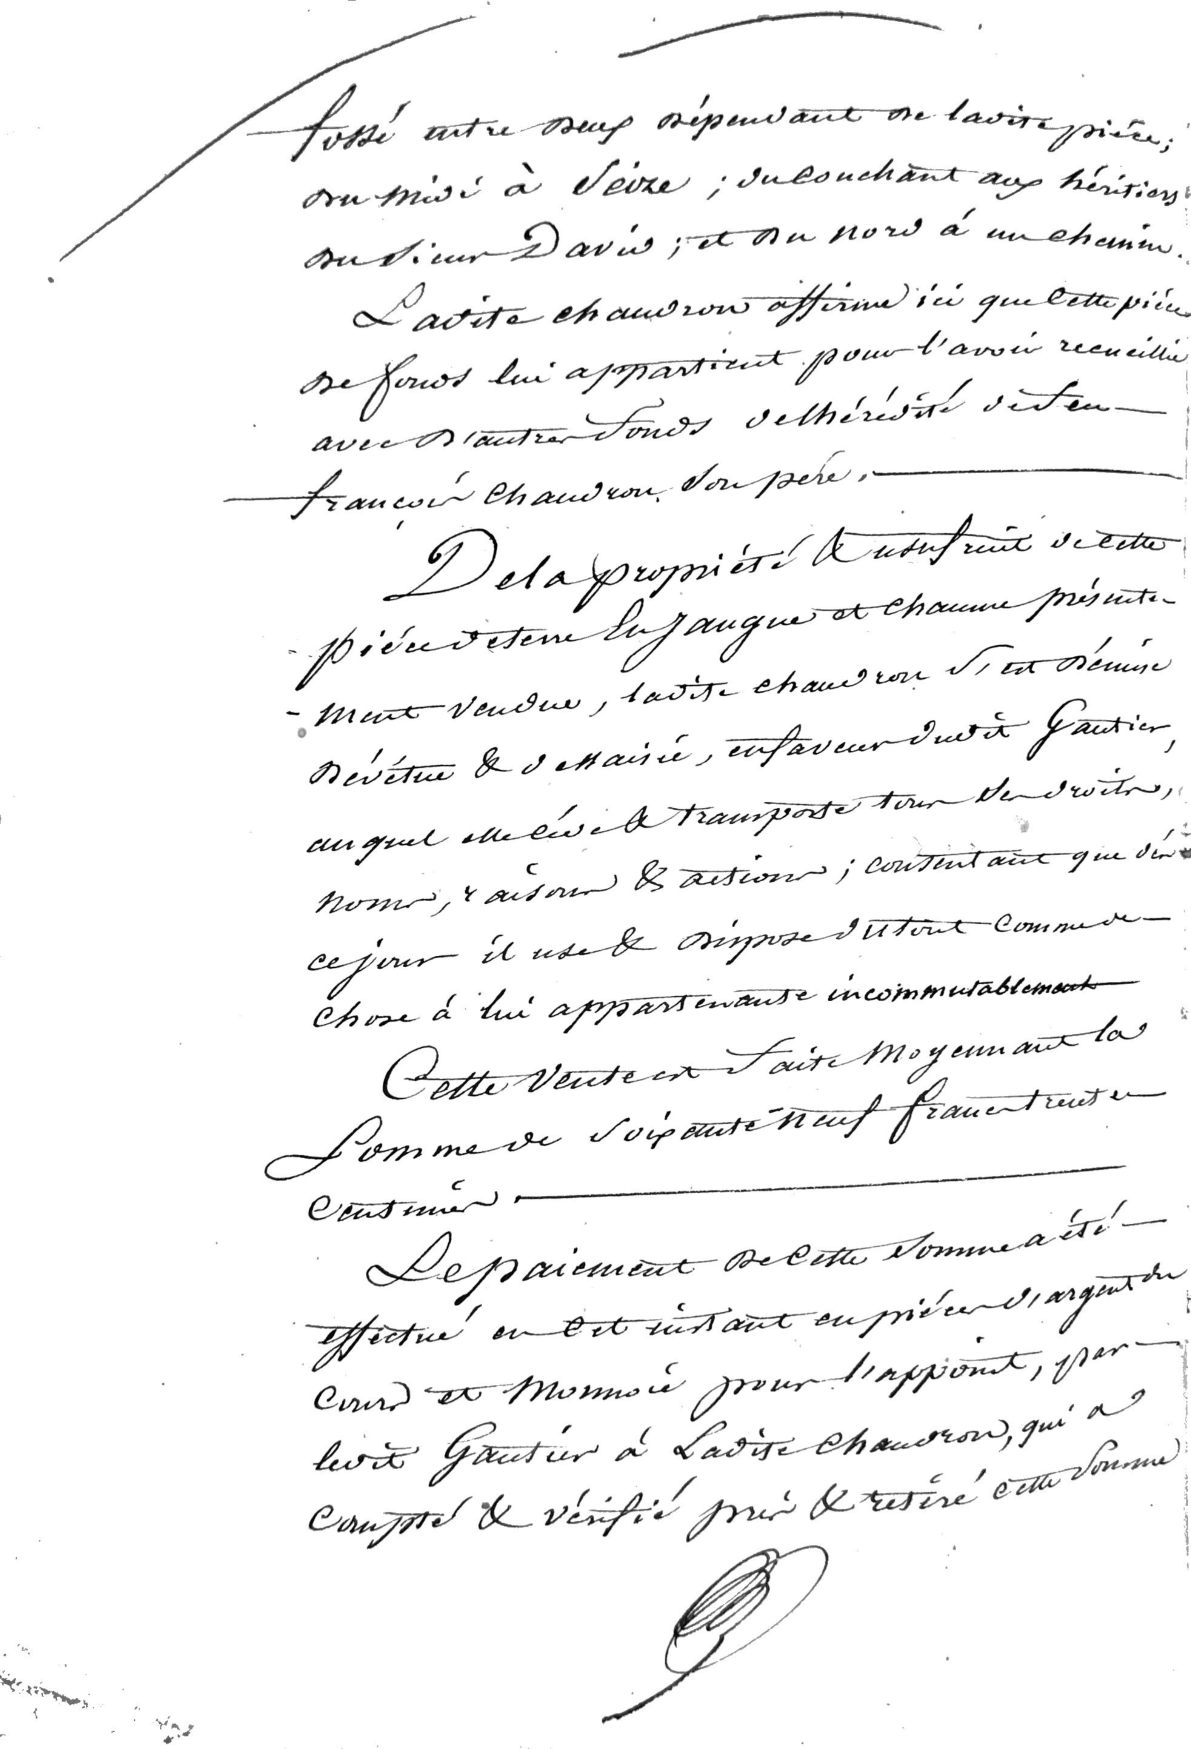 fossé entre deux dépendant de ladite pièce;
du midi à Seize; du couchant aux héritiers
du sieur David; et du nord à un chemin.
Ladite chaudron affirme ici que cette pièce
de fonds lui appartient pour l'avoir recueillie
avec d'autres fonds de l'hérédité de feu
françois chaudron, son père.
De la propriété & usufruit de cette
pièce de terre En Jaugue et Chaume présente-
-ment vendue, ladite chaudron s'est démise
dévétue & dessaisie, en faveur dudit Gautier,
auquel elle cède & transporte tous ses droits,
noms, raisons & actions; consentant que dès
ce jour il use & dispose du tout comme de
chose à lui appartenante incommutablement
Cette Vente est faite Moyennant la
Somme de soixante neuf francs trente
Centimes.
Le paiement de cette somme a été
effectué en cet instant en pièces d'argent du
cours et Monnoie pour l'appoint, par
ledit Gautier à Ladite Chaudron, qui a
compté & vérifié pris & retiré cette somme